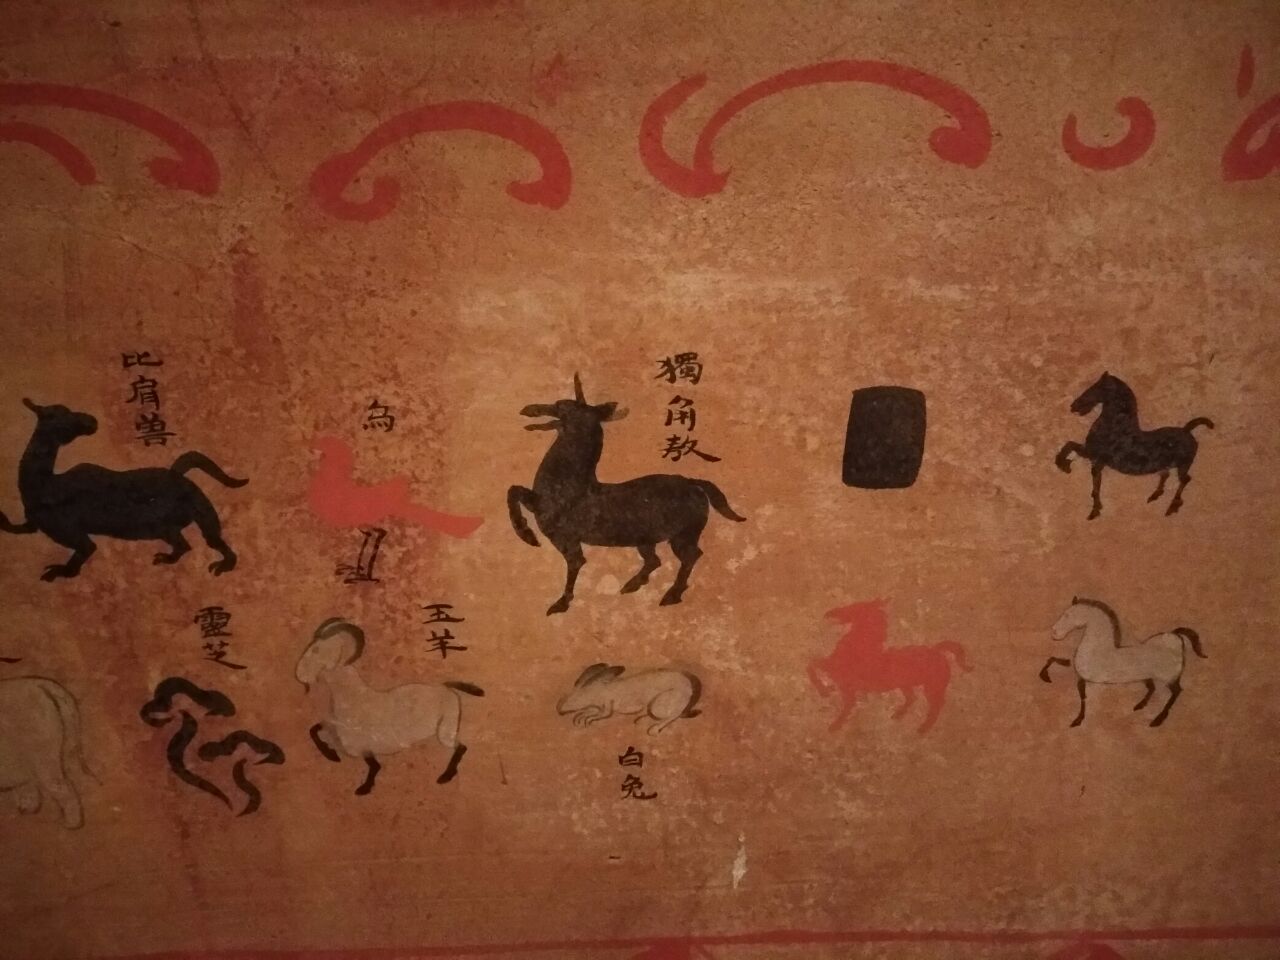 比肩兽
乌
獨角敖
靈芝
玉羊
白兔